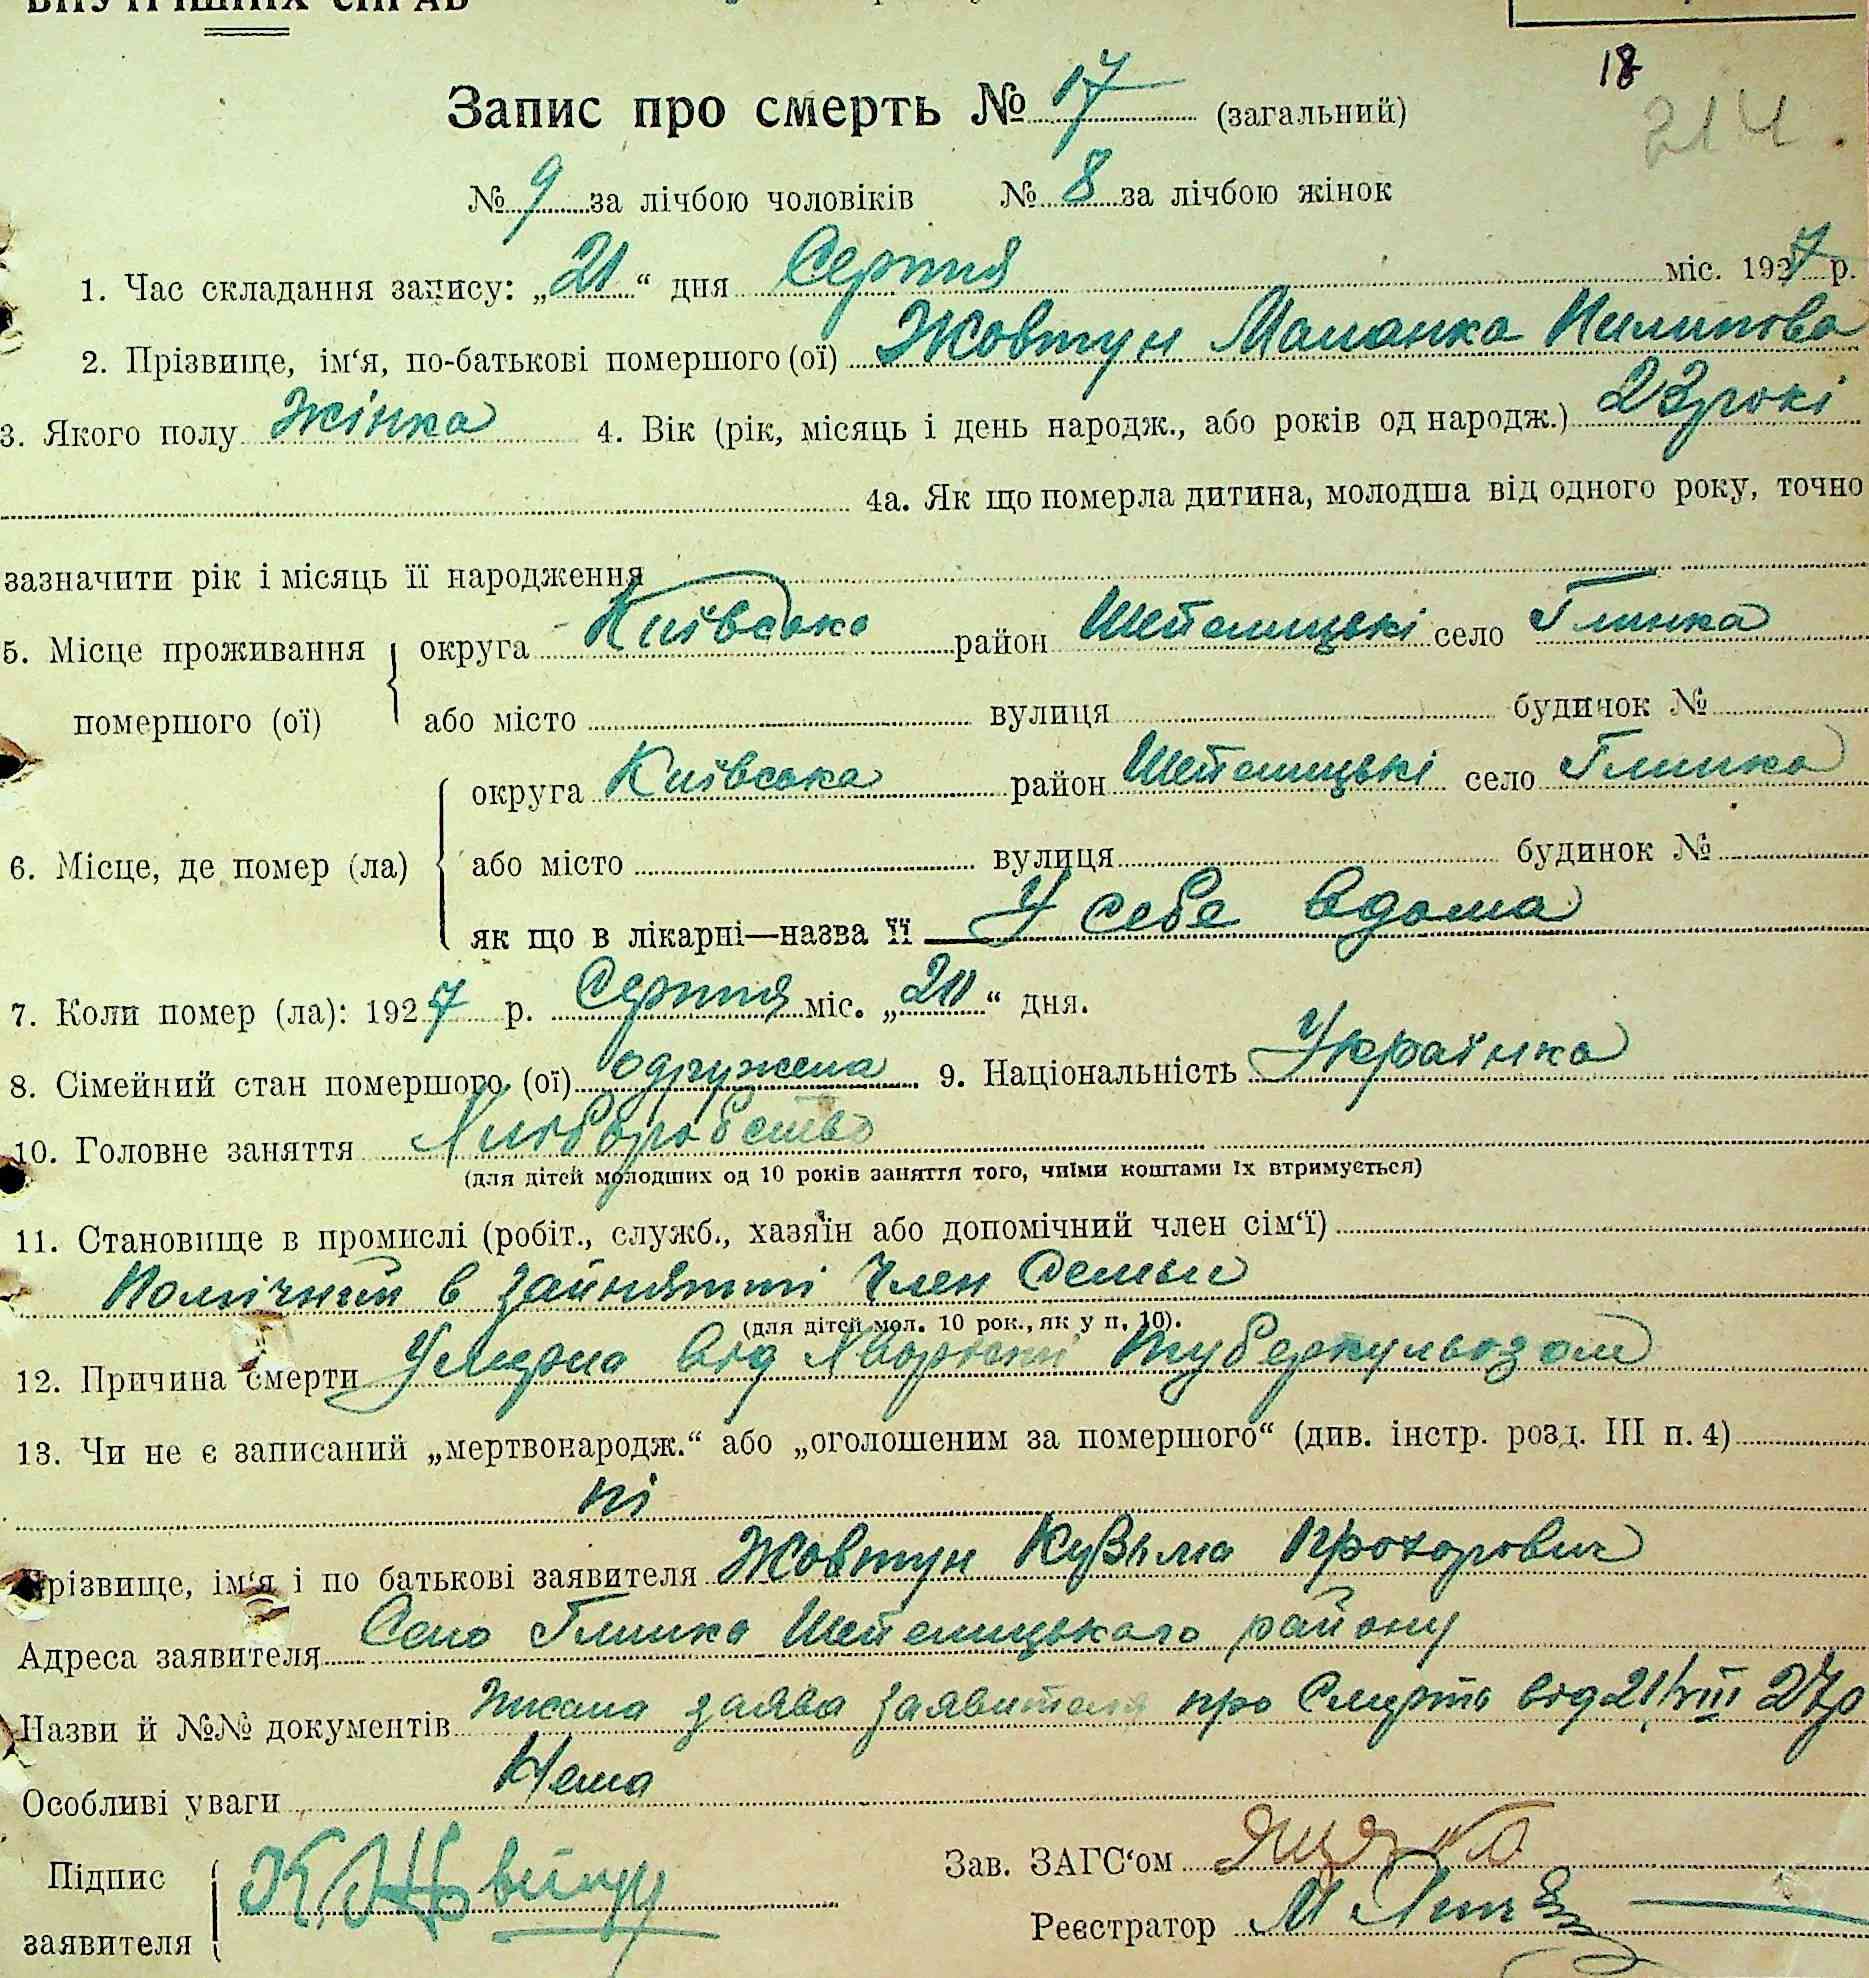 ВНУТРІШНІХ СПРАВ
18
214.
Запис про смерть № 17 (загальний)
№ 9 за лічбою чоловіків № 8 за лічбою жінок
1. Час складання запису: „21“ дня Серпня міс. 1927 р.
2. Прізвище, ім‘я, по-батькові помершого (ої) Жовтун Маланка Пилипова
3. Якого полу Жінка 4. Вік (рік, місяць і день народж., або років од народж.) 23 рокі
4а. Як що померла дитина, молодша від одного року, точно
зазначити рік і місяць її народження
5. Місце проживання помершого (ої) округа Київська район Шепелицькі село Глинка
або місто вулиця будинок №
6. Місце, де помер (ла) округа Київська район Шепелицькі село Глинка
або місто вулиця будинок №
як що в лікарні—назва її У себе вдома
7. Коли помер (ла): 1927 р. Серпня міс. „21“ дня.
8. Сімейний стан помершого (ої) одружена 9. Національність Українка
10. Головне заняття Хліборобство
(для дітей молодших од 10 років заняття того, чиїми коштами їх втримується)
11. Становище в промислі (робіт., служб., хазяїн або допомічний член сім‘ї)
Помічний в зайнятті член Семьи
(для дітей мол. 10 рок., як у п. 10).
12. Причина смерти Умерла від туберкульозом
13. Чи не є записаний „мертвонародж.“ або „оголошеним за помершого“ (див. інстр. розд. III п. 4)
ні
Прізвище, ім‘я і по батькові заявителя Жовтун Кузьма Прохорович
Адреса заявителя Село Глинка Шепелицького району
Назви й №№ документів заява заявителя про Смерть від 21/VIII 27р
Особливі уваги Нема
Підпис заявителя
Зав. ЗАГС‘ом
Реєстратор